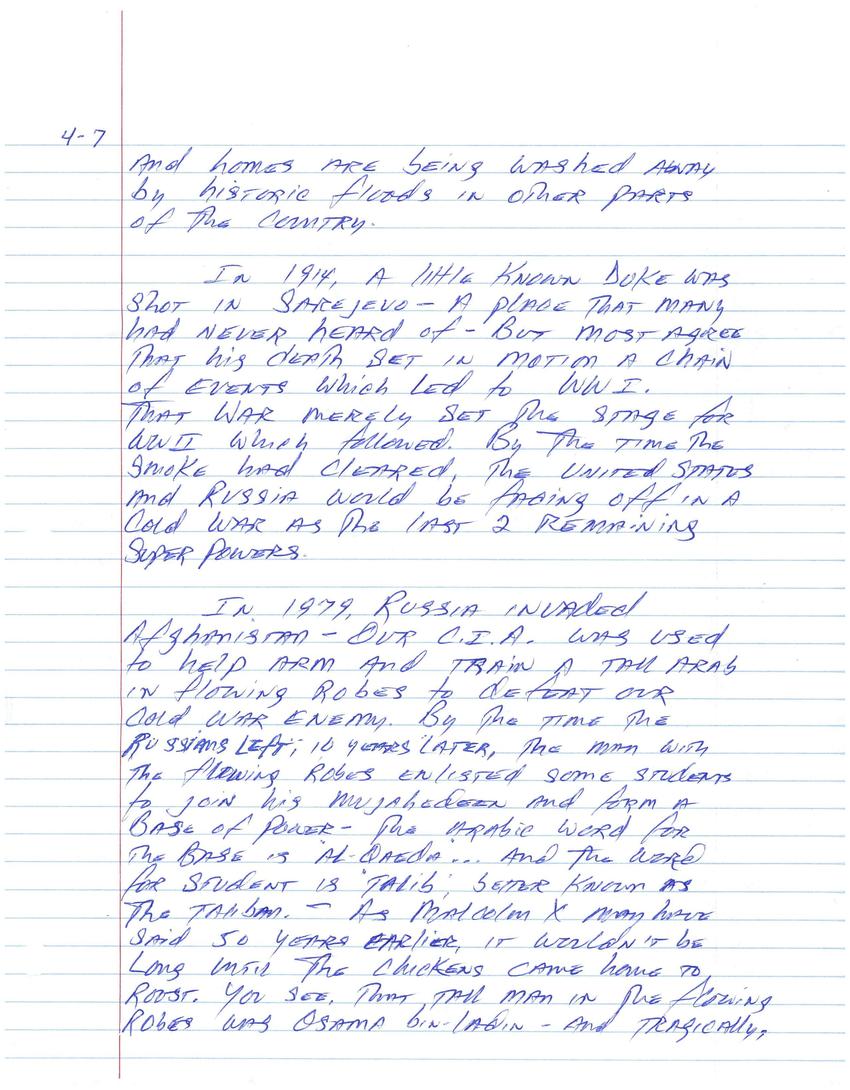 4-7
And homes are being washed away
by historic floods in other parts
of the country.
In 1914, A little known Duke was
shot in Sarejevo - A place that many
had never heard of - But most agree
that his death set in motion a chain
of events which led to WWI.
That war merely set the stage for
WWII which followed. By the time the
smoke had cleared, the United States
and Russia would be facing off in a
Cold War as the last 2 remaining
Super Powers.
In 1979, Russia invaded
Afghanistan - Our C.I.A. was used
to help arm and train a tall Arab
in flowing robes to defeat our
Cold War enemy. By the time the
Russians left, 10 years later, the man with
the flowing robes enlisted some students
to join his Mujahedeen and form a
Base of Power - The Arabic word for
the Base is "Al-Qaeda"... And the word
for student is "Talib", better known as
the Taliban. - As Malcolm X may have
said 50 years earlier, it wouldn't be
long until the chickens came home to
roost. You see, that tall man in the flowing
robes was Osama bin-Ladin - and tragically,